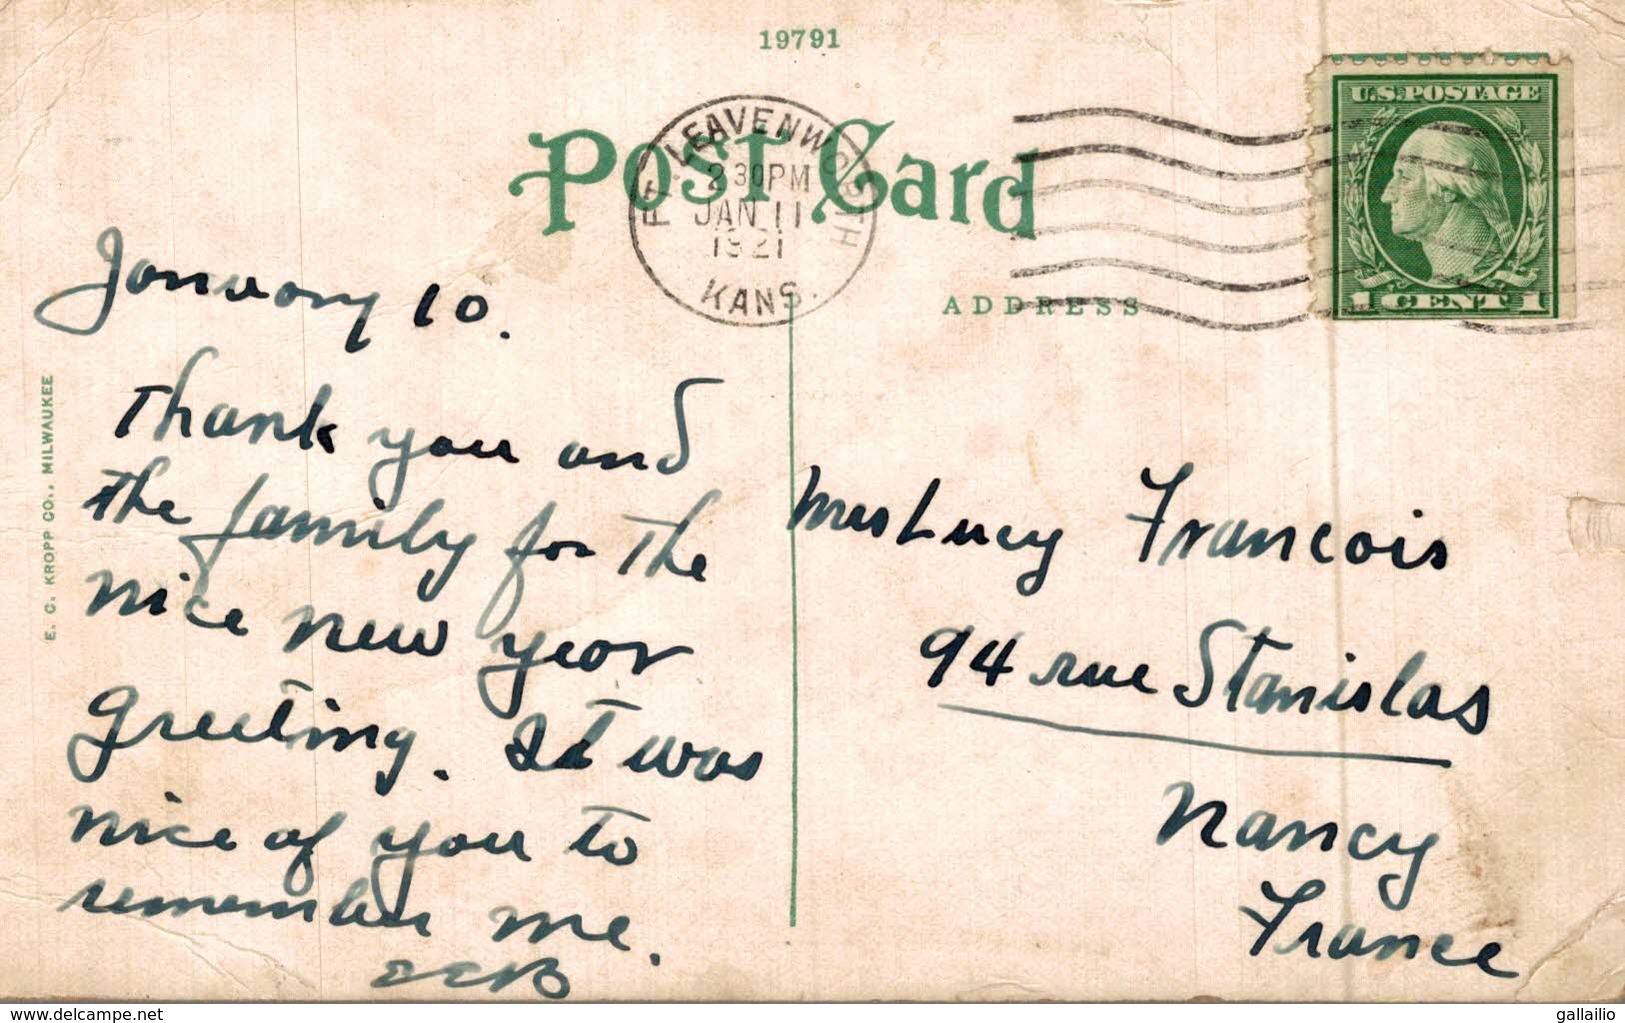 19791
Post Card
FT. LEAVENWORTH
2 30PM
JAN 11
1921
KANS.
U.S. POSTAGE
1 CENT 1
ADDRESS
E. C. KROPP CO., MILWAUKEE
January 10.
Thank you and
the family for the
nice new year
greeting. It was
nice of you to
remember me.
EEB
Mrs Lucy Francois
94 rue Stanislas
Nancy
France
delcampe.net
gallailio